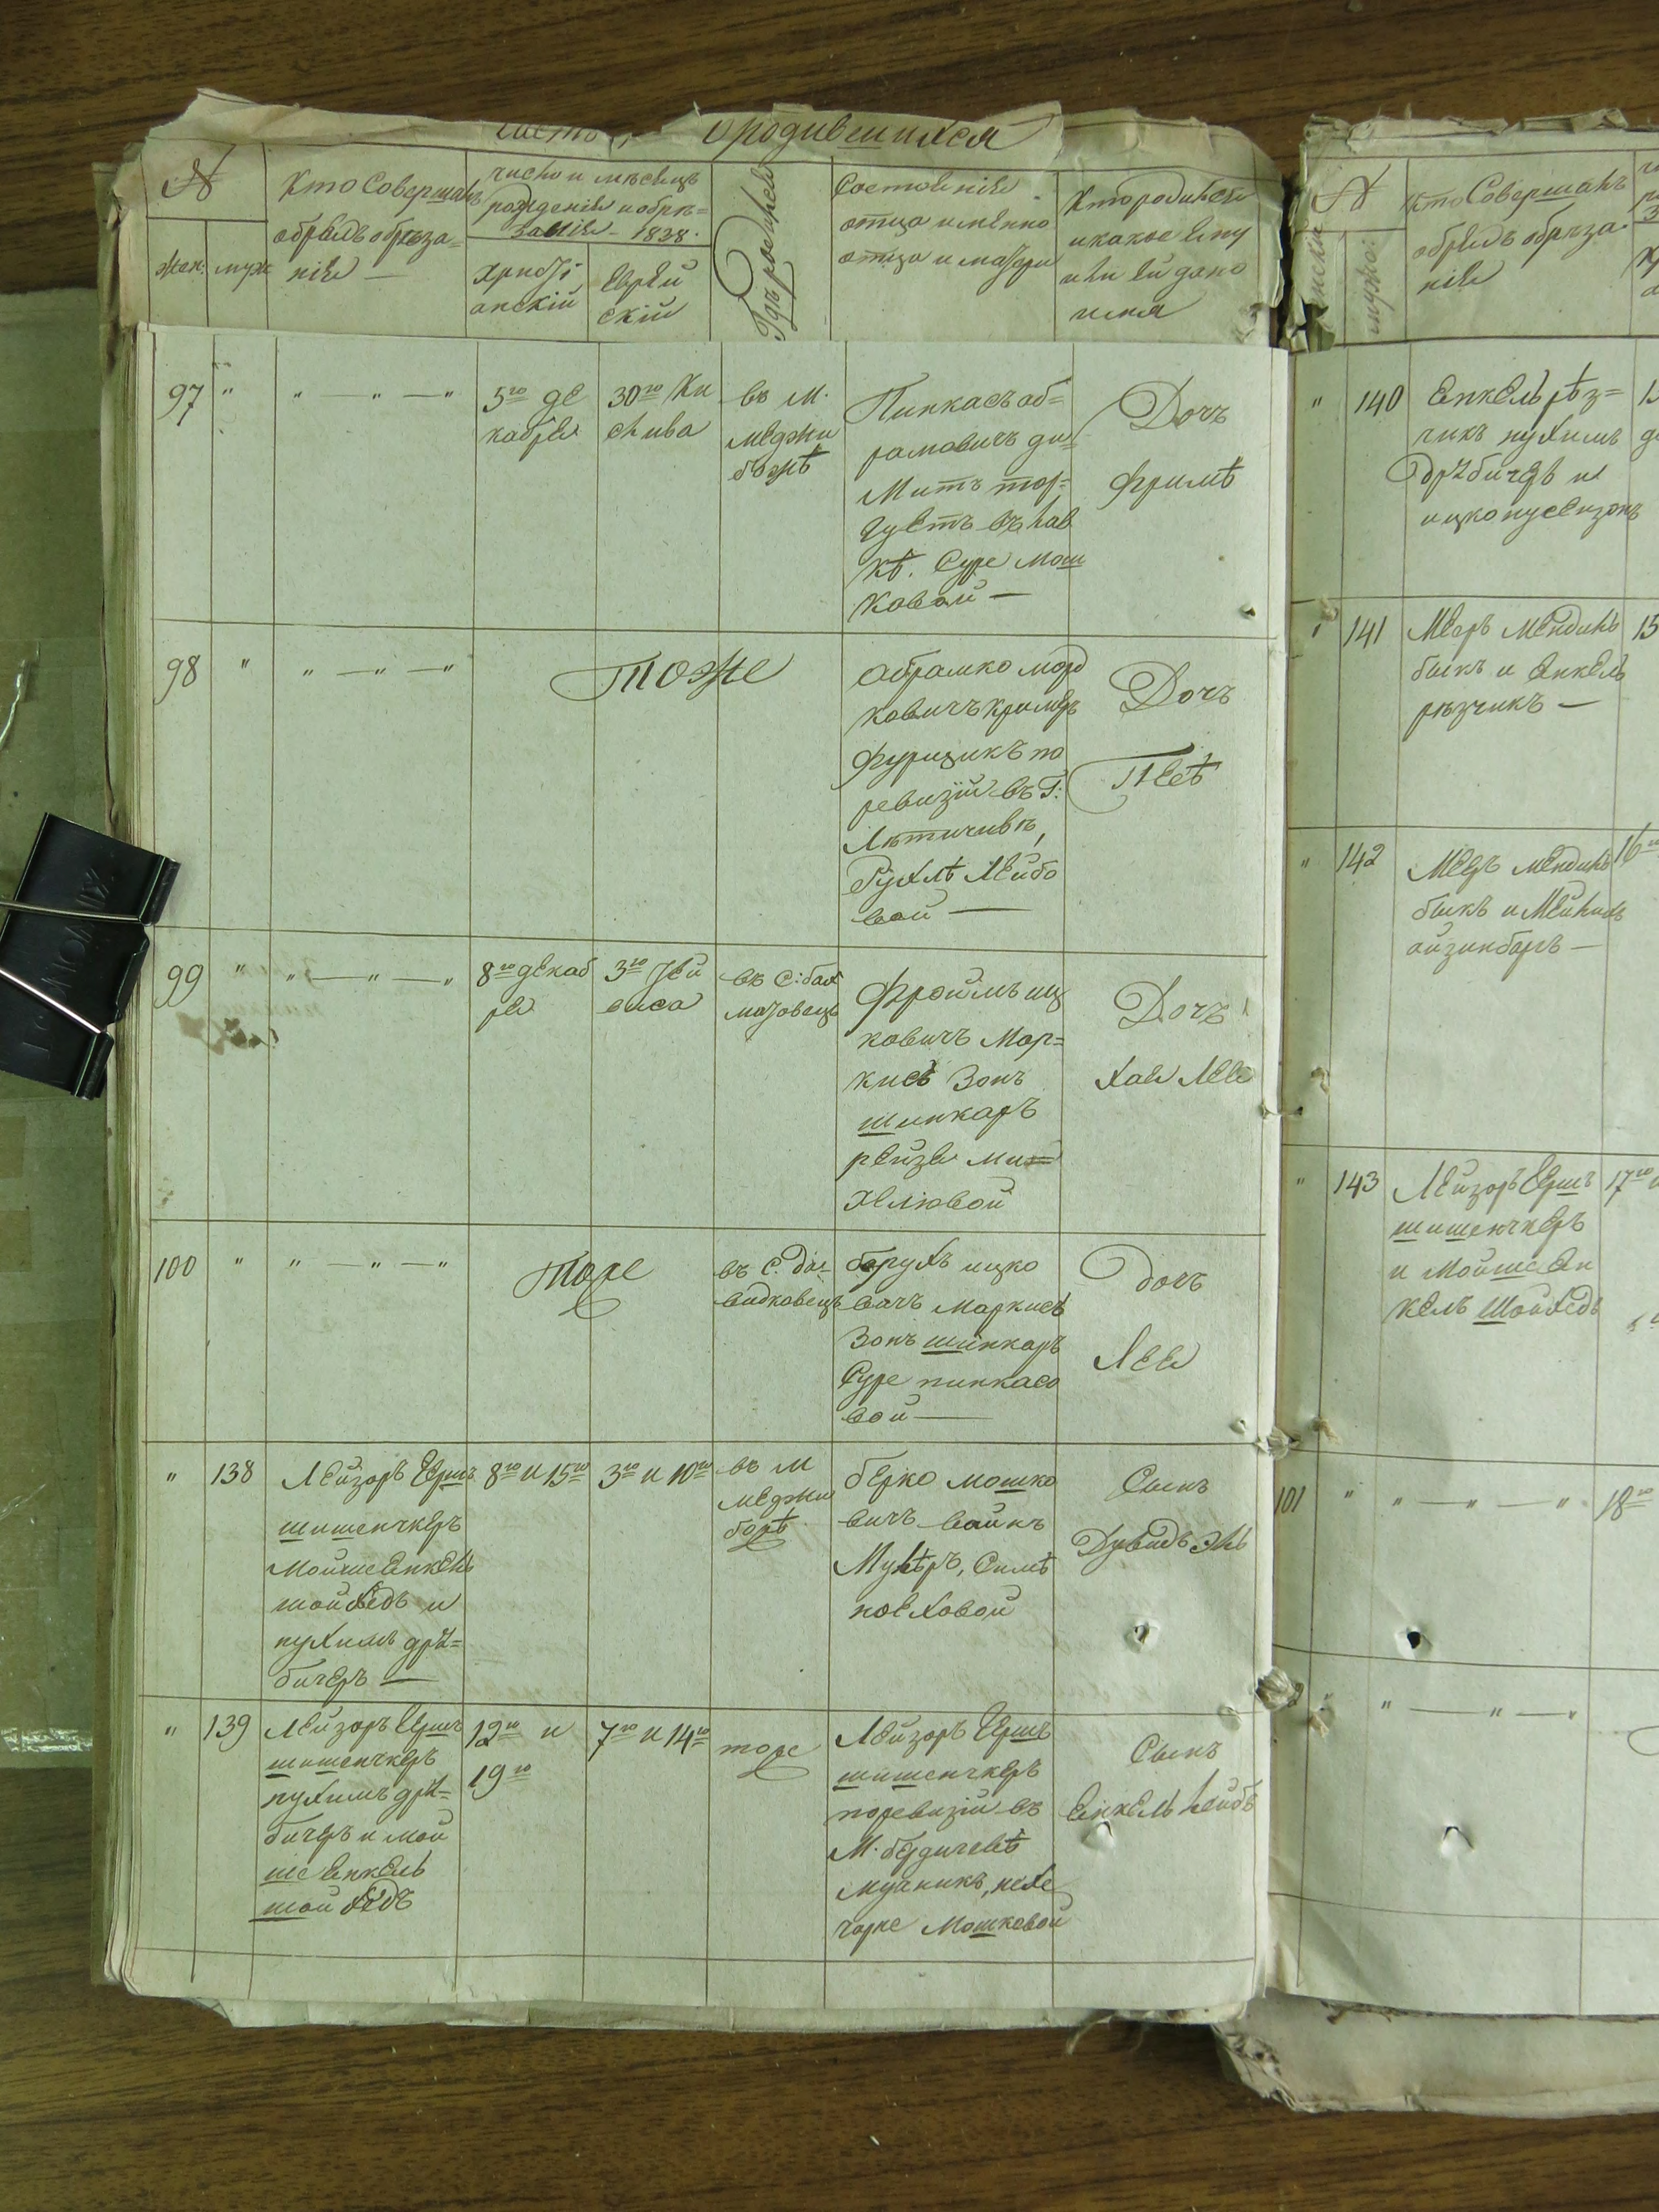 о родившихся
№
Кто Совершалъ
обрядъ обрѣза=
нія —
число и мѣсяцъ
рожденія и обрѣ=
занія — 1838.
Жен.
муж
христі
анскій
Еврей
скій
Гдѣ родился
Состояніе
отца имянно
отца и матери
Кто родился
и какое ему
или ей дано
имя
97 " " — " — "
5го де
кабря
30го Ки
слива
въ м.
Меджи
божѣ
Пинкасъ аб=
рамовичъ ди
Митъ тор=
гуетъ въ лав
кѣ. Суре Мош
ковой —
Дочъ
Фримѣ
98 " " — " — "
Тоже
Абрамко морд
ковичъ
фурщикъ по
ревизіи въ Г:
Лѣтичивѣ,
Рухлѣ Лейбо
вой —
Дочъ
Песѣ
99 " " — " — "
8го декаб
ря
3го Тей
виса
въ с:
Фроимъ иц
ковичъ Мар=
кисъ Зонъ
шинкаръ
рейзя ми=
хелювой
Дочъ
Хая Лея
100 " " — " — "
Тоже
въ с. Да
видковецъ
борухъ ицко
вичъ Маркисъ
Зонъ шинкаръ
Суре пинкасо
вой —
дочъ
Лея
" 138
Лейзоръ Гершъ
шишенчкеръ
Мойше Янкель
шойхедъ и
нухимъ дрӣ=
бичеръ —
8го и 15го
3го и 10го
въ м
Меджи
божѣ
берко мошко
вичъ вайнъ
Мулѣръ, Симѣ
пов
Сынъ
Дувидъ Эль
" 139
Лейзоръ Гершъ
шишенчкеръ
нухимъ дрӣ=
бичеръ и мой
ше Янкель
шойхедъ
12го и
19го
7го и 14го
тоже
Лейзоръ Гершъ
шишенчкеръ
поревизіи въ
М. бердичевѣ
мушникъ, нехе
чарне Мошковой
Сынъ
Янкель лейбъ
№
кто Совершалъ
обрядъ обрѣза
нія
женски
мужс:
" 140
Янкель рѣз=
чикъ нухимъ
и
ицко нусензонъ
" 141
Мееръ Мендиль
быкъ и Янкель
рѣзчикъ —
15
" 142
Мееръ Мендиль
быкъ и Мейлихъ
айзинберъ —
16го
" 143
Лейзоръ Гершъ
шишенчкеръ
и Мойше Ян
кель Шойхедъ
17го
101 " " — " — "
18го
" " — " — "